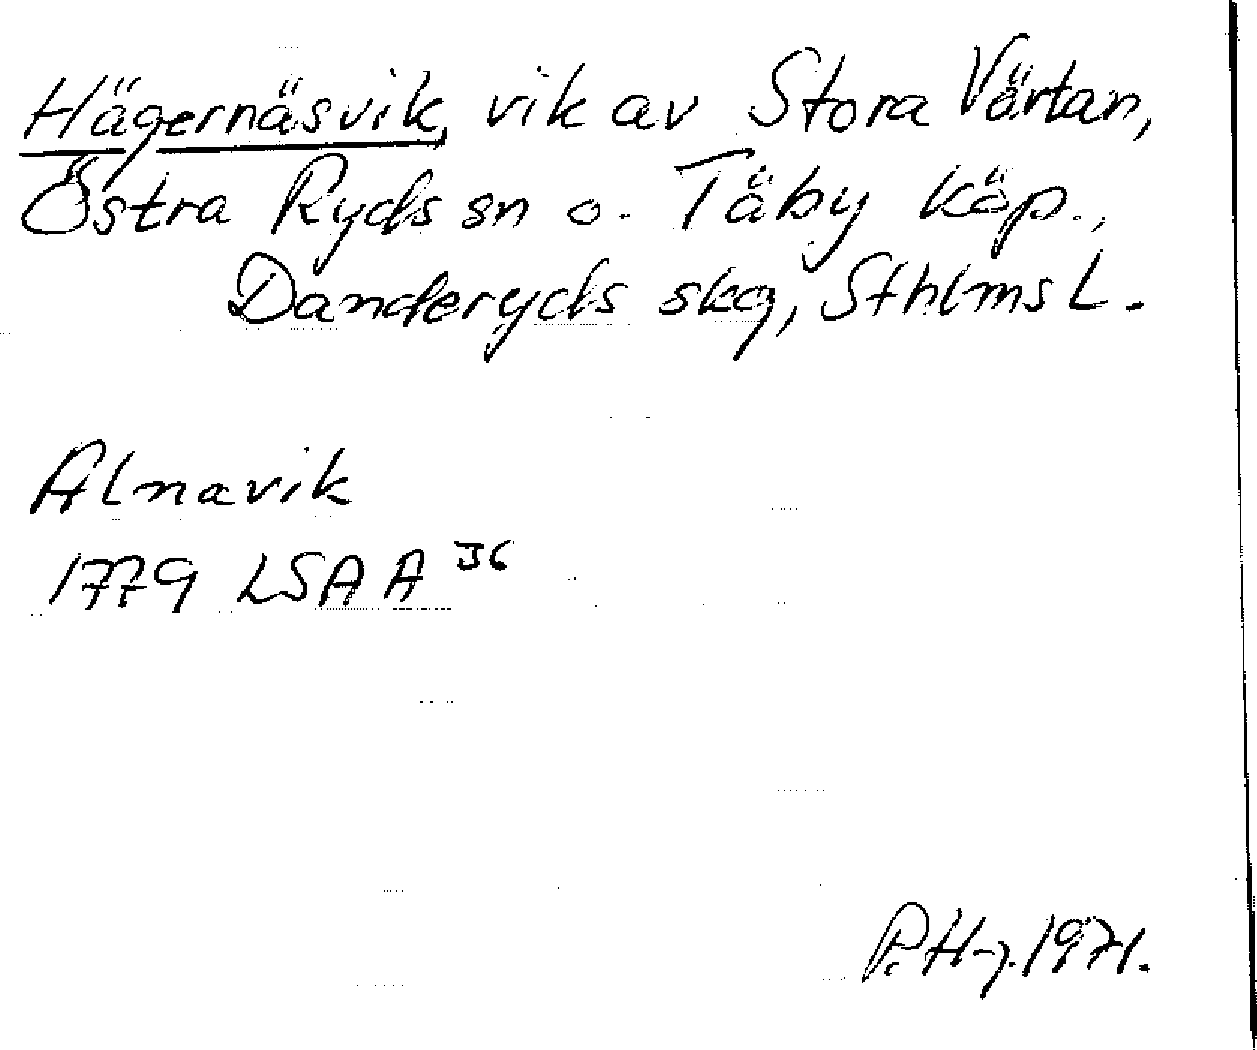 Hägernäsvik, vik av Stora Värtan,
Östra Ryds sn o. Täby köp.,
Danderyds skg, Sthlms L.
Alnavik
1779 LSA A 36
P. H-g. 1971.